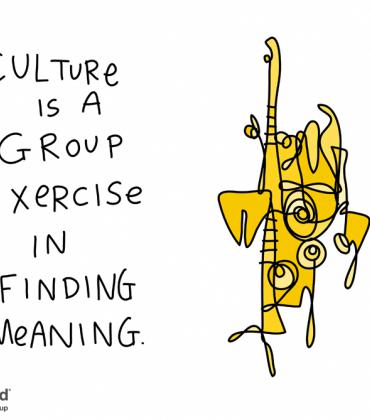 CULTURe
IS A
GROUP
XeRCISe
IN
FINDING
MeANING.
d®
up